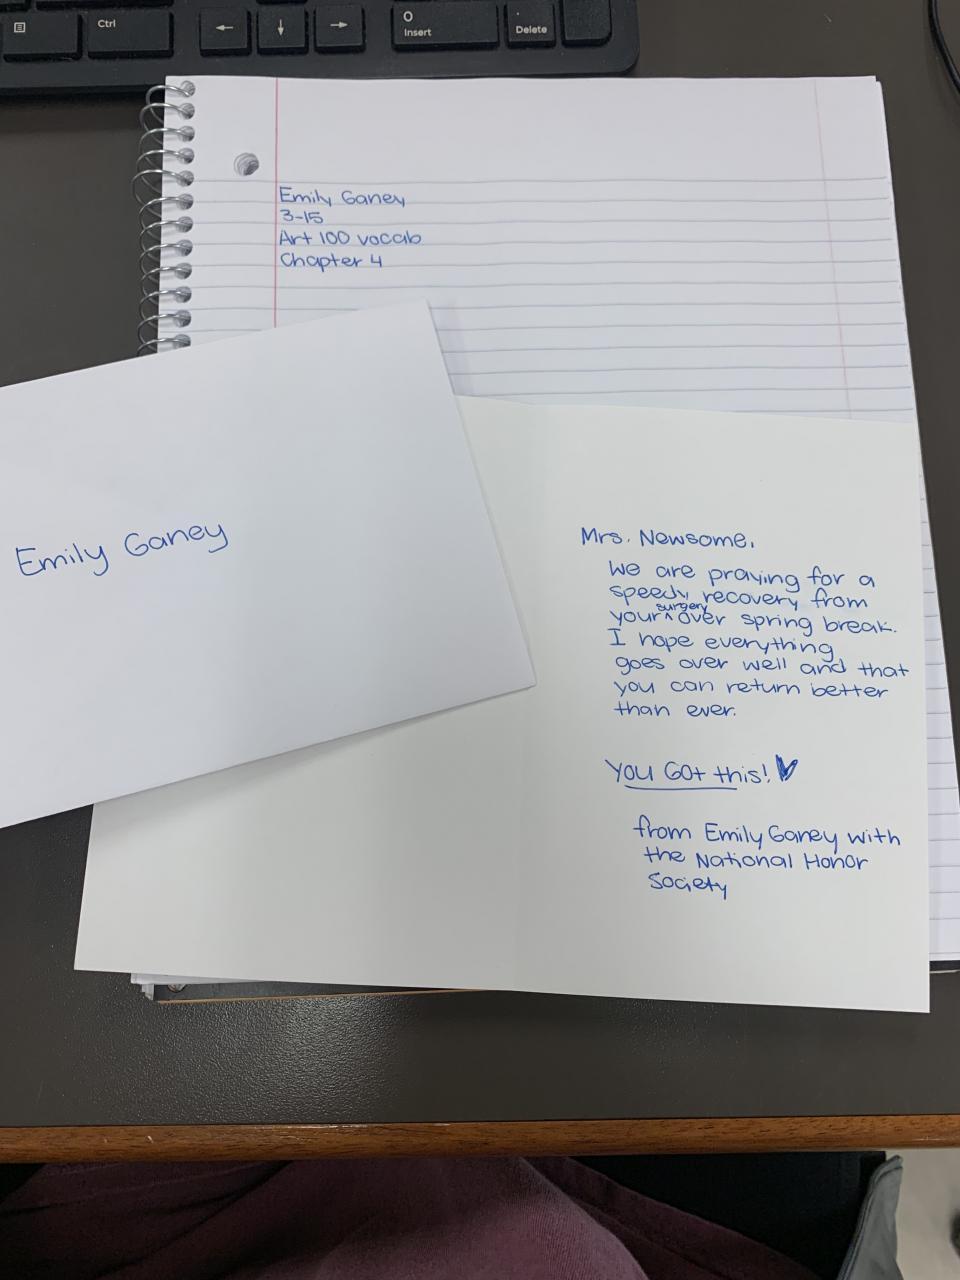 Ctrl
←
↓
→
0
Insert
.
Delete
Emily Ganey
3-15
Art 100 vocab
Chapter 4
Emily Ganey
Mrs. Newsome,
We are praying for a
speedy recovery from
your ^surgery over spring break.
I hope everything
goes over well and that
you can return better
than ever.
You Got this! ♥
from Emily Ganey with
the National Honor
Society